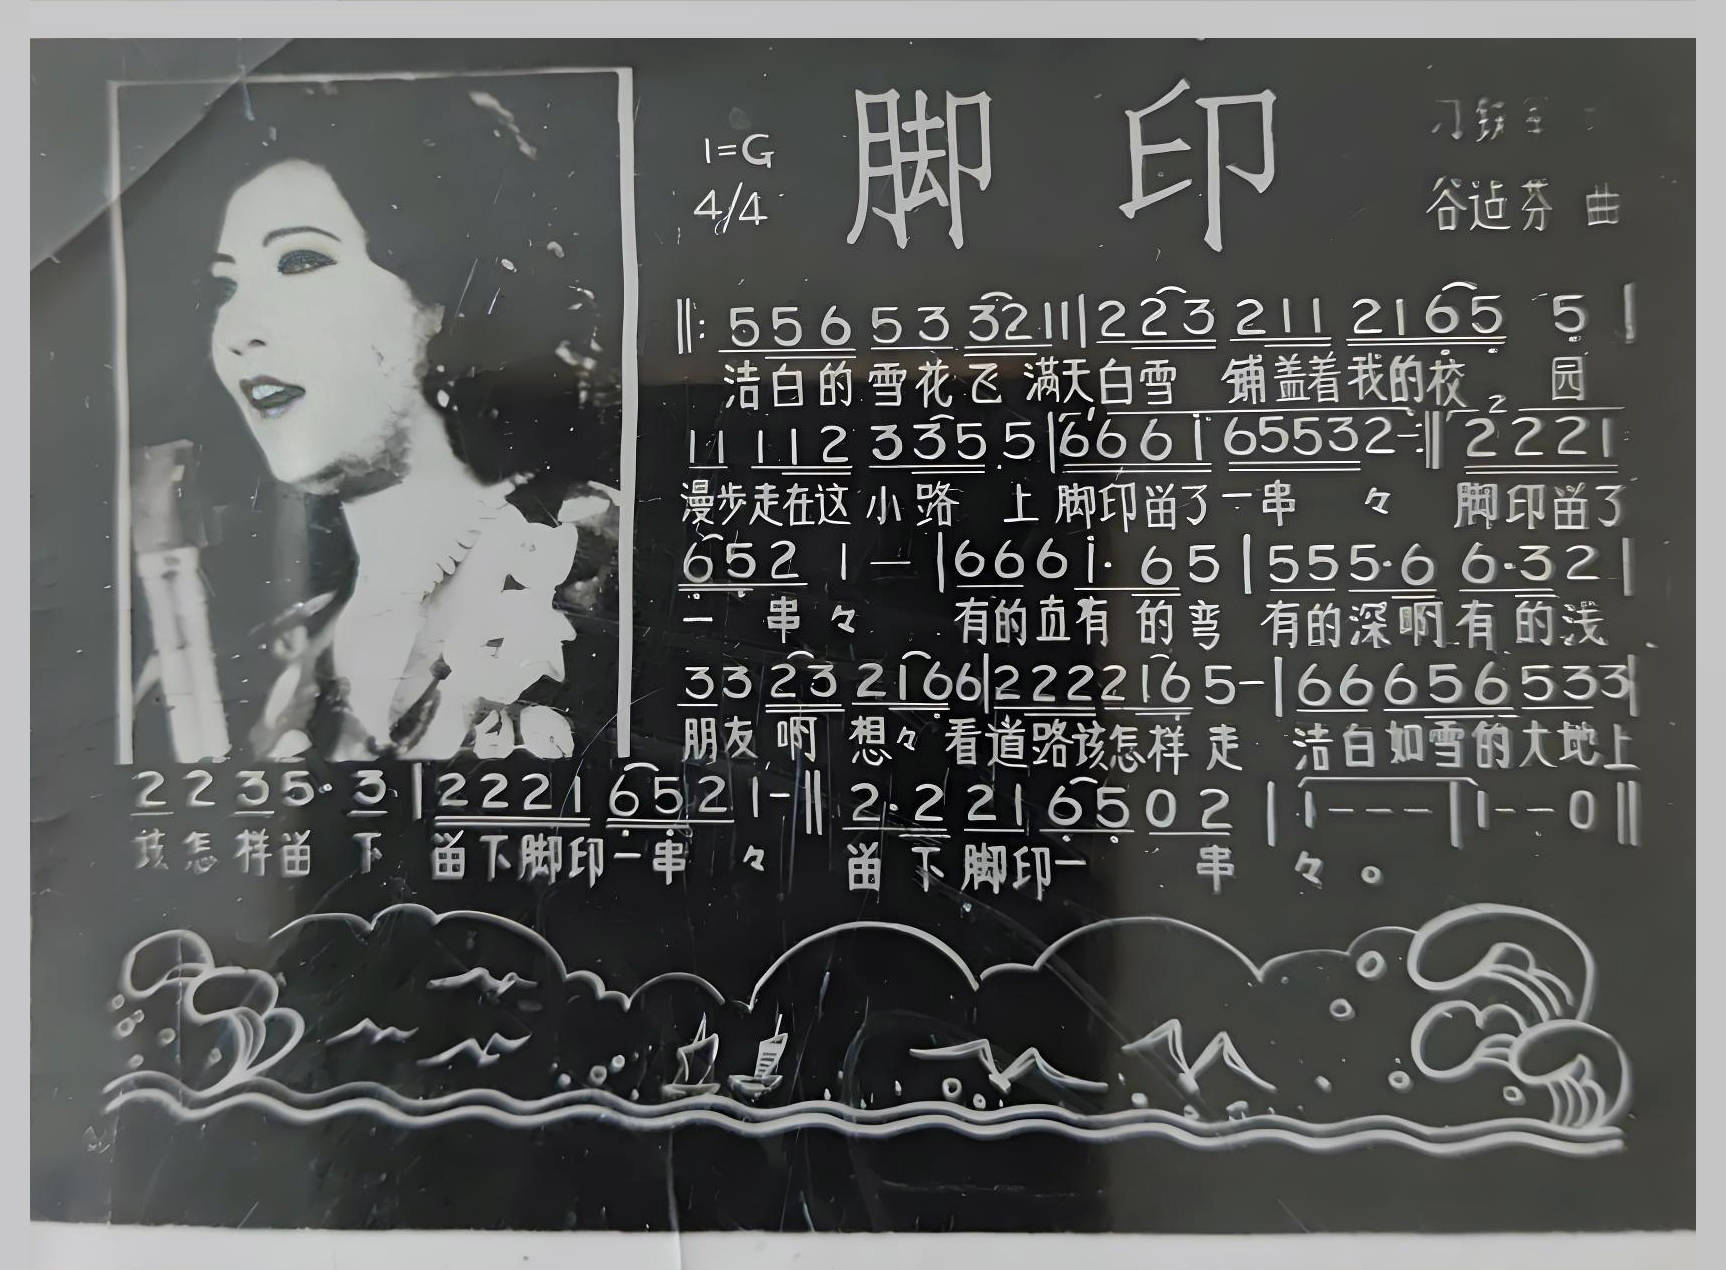 脚印
1=G
4/4
谷迨芬 曲
‖: 5 5 6 5 3 3 2 1 1 1 | 2 2 3 2 1 1 2 1 6 5 5 |
洁白的雪花飞 满天白雪 铺盖着我的校 园
1 1 1 1 2 3 3 5 5 | 6 6 6 i 6 5 5 3 2 - :‖ 2 2 2 1
漫步走在这小路 上 脚印畄了一串 々 脚印畄了
6 5 2 1 — | 6 6 6 i· 6 5 | 5 5 5·6 6·3 2 |
一 串 々 有的直有 的弯 有的深啊有 的浅
3 3 2 3 2 1 6 6 | 2 2 2 2 1 6 5 - | 6 6 6 5 6 5 3 3 |
朋友 啊 想々 看道路该怎样 走 洁白如雪的大地上
2 2 3 5· 3 | 2 2 2 1 6 5 2 1 - ‖ 2·2 2 1 6 5 0 2 | 1 - - - | 1 - - 0 ‖
该怎样畄 下 畄下脚印一串 々 畄下脚印一 串 々。